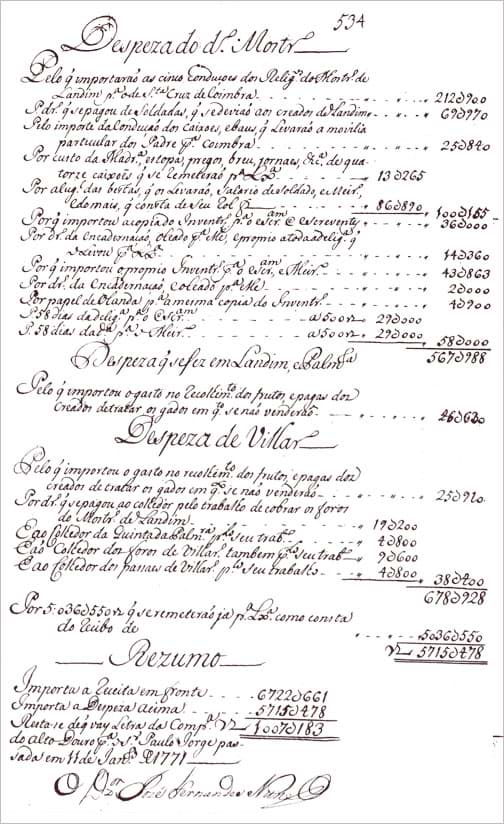 534
Despeza do d.º Mostr.º
Pelo q̃ importaraõ as cinco Conduçoes dos Relig.os do Mostr.o de
Landim p.ª o de S.ta Cruz de Coimbra 212∂900
P. dr.o q̃ se pagou de Soldadas, q̃ se deviaõ aos creados de Landim 69∂970
Pelo importe da Conduçaõ dos Caixoes, e baus, q̃ Levaraõ a movilia
particular dos Padre p.ª Coimbra 25∂840
Por custo da Madr.ª, estopa, pregos, breu, jornaes, &c.ª de qua-
torze caixoes q̃ se remeteraõ p.ª Lx.ª 13∂265
Por alug.es das bestas, q̃ os Livaraõ, Salario de Soldado, e Meir.
e do mais, q̃ consta de seu rol P 86∂890 100∂155
Por q̃ importou a copia do Invent.º p.ª o escr.am e escrevente 36∂000
Por dr.o da encadernaçaõ, oleado p.ª elle, e proprio a toda a delig.ª q̃
Levou p.ª Lx.ª 14∂360
Por q̃ importou o proprio Inventr.º p.ª o escr.am, e Meir. 43∂863
Por dr.o da Encadernaçaõ, e oleado p.ª elle 2∂000
Por papel de Olanda p.ª a mesma copia do Inventr.º 4∂900
P. 58 dias da delig.ª p.ª o escr.am a 500 rz 29∂000
P. 58 dias da d.ª p.ª o Meir. a 500 rz 29∂000 58∂000
567∂988
Despeza q̃ se fez em Landim, e Palm.ra
Pelo q̃ importou o gasto no recolhim.to dos frutos, e pagas dos
creados de tratar os gados em q.to se naõ venderaõ
Despeza de Villar
Pelo q̃ importou o gasto no recolhim.to dos frutos, e pagas dos
creados de tratar os gados em q.to se naõ venderaõ 25∂920
Por dr.o q̃ se pagou ao colledor pelo trabalho de cobrar os foros
do Mostr.º de Landim 19∂200
E ao Colledor da Quinta da Palm.ra p.lo seu trab.º 4∂800
E ao Colledor dos foros de Villar tambem p.lo seu trab.º 9∂600
E ao Colledor dos passaes de Villar p.lo seu trabalho 4∂800 38∂400
678∂928
Por 5:036∂550 rz q̃ se remeteraõ ja p.ª Lx.ª como consta
do recibo de 5036∂550
rz 5715∂478
Rezumo
Importa a receita em fronte 6722∂661
Importa a Despeza acima 5715∂478
Resta-se de q̃ vay Letra da Comp.ª rz 1007∂183
do Alto Douro p.ª o S.r Paulo Jorge pas-
sada em 11 de Jan.º de 1771
José Fernandes